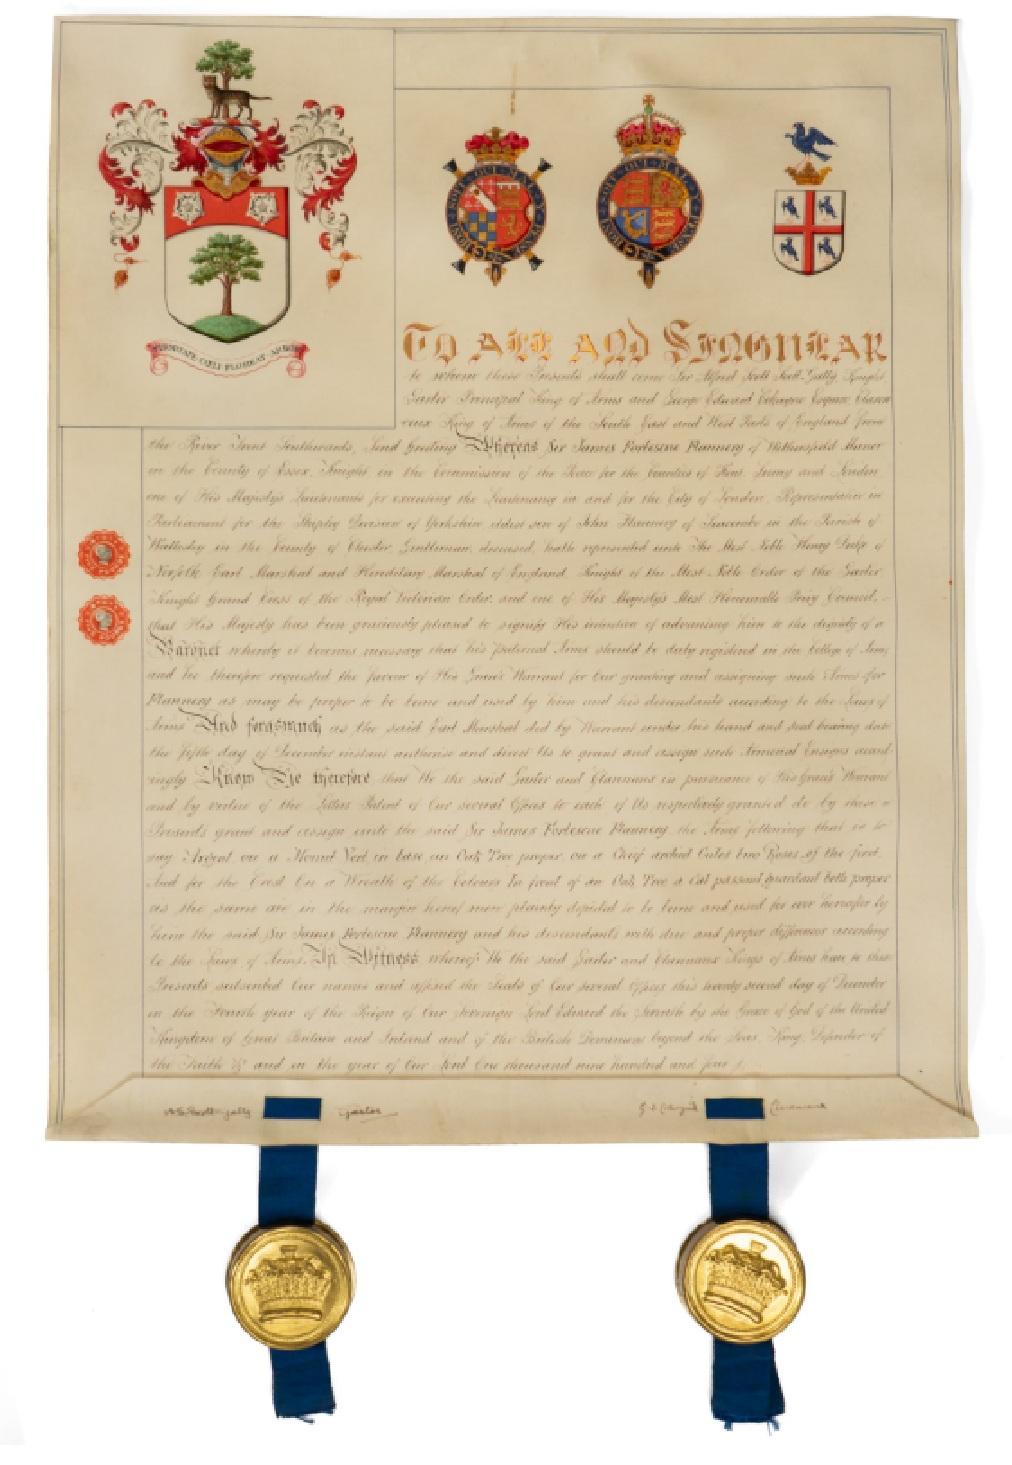 HONI · SOIT · QUI · MAL · Y · PENSE
HONI · SOIT · QUI · MAL · Y · PENSE
To All and Singular
to whom these Presents shall come Sir Alfred Scott Scott-Gatty, Knight
Garter Principal King of Arms and George Edward Cokayne Esquire Claren
ceux King of Arms of the South East and West Parts of England from
the River Trent Southwards, Send Greeting Whereas Sir James Fortescue Flannery of Wethersfield Manor
in the County of Essex, Knight in the Commission of the Peace for the Counties of Kent, Surrey and London
one of His Majesty's Lieutenants for executing the Lieutenancy in and for the City of London, Representative in
Parliament for the Shipley Division of Yorkshire eldest son of John Flannery of Seacombe in the Parish of
Wallasey in the County of Chester, Gentleman, deceased, hath represented unto The Most Noble Henry Duke of
Norfolk Earl Marshal and Hereditary Marshal of England, Knight of the Most Noble Order of the Garter
Knight Grand Cross of the Royal Victorian Order, and one of His Majesty's Most Honourable Privy Council,
that His Majesty has been graciously pleased to signify His intention of advancing him to the dignity of a
Baronet whereby it becomes necessary that his paternal Arms should be duly registered in the College of Arms
and he therefore requested the favour of His Grace's Warrant for Our granting and assigning such Arms for
Flannery as may be proper to be borne and used by him and his descendants according to the Laws of
Arms And forasmuch as the said Earl Marshal did by Warrant under his hand and seal bearing date
the fifth day of December instant authorise and direct Us to grant and assign such Armorial Ensigns accord
ingly Know Ye therefore that We the said Garter and Clarenceux in pursuance of His Grace's Warrant
and by virtue of the Letters Patent of Our several Offices to each of Us respectively granted do by these
Presents grant and assign unto the said Sir James Fortescue Flannery the Arms following that is to
say Argent on a Mount Vert in base an Oak Tree proper, on a Chief arched Gules two Roses of the first,
And for the Crest On a Wreath of the Colours In front of an Oak Tree a Cat passant guardant both proper
as the same are in the margin hereof more plainly depicted to be borne and used for ever hereafter by
him the said Sir James Fortescue Flannery and his descendants with due and proper differences according
to the Laws of Arms. In Witness whereof We the said Garter and Clarenceux Kings of Arms have to these
Presents subscribed Our names and affixed the Seals of Our several Offices this twenty second day of December
in the Fourth year of the Reign of Our Sovereign Lord Edward the Seventh by the Grace of God of the United
Kingdom of Great Britain and Ireland and of the British Dominions beyond the Seas, King, Defender of
the Faith &c and in the year of Our Lord One thousand nine hundred and four
Garter
Clarenceux